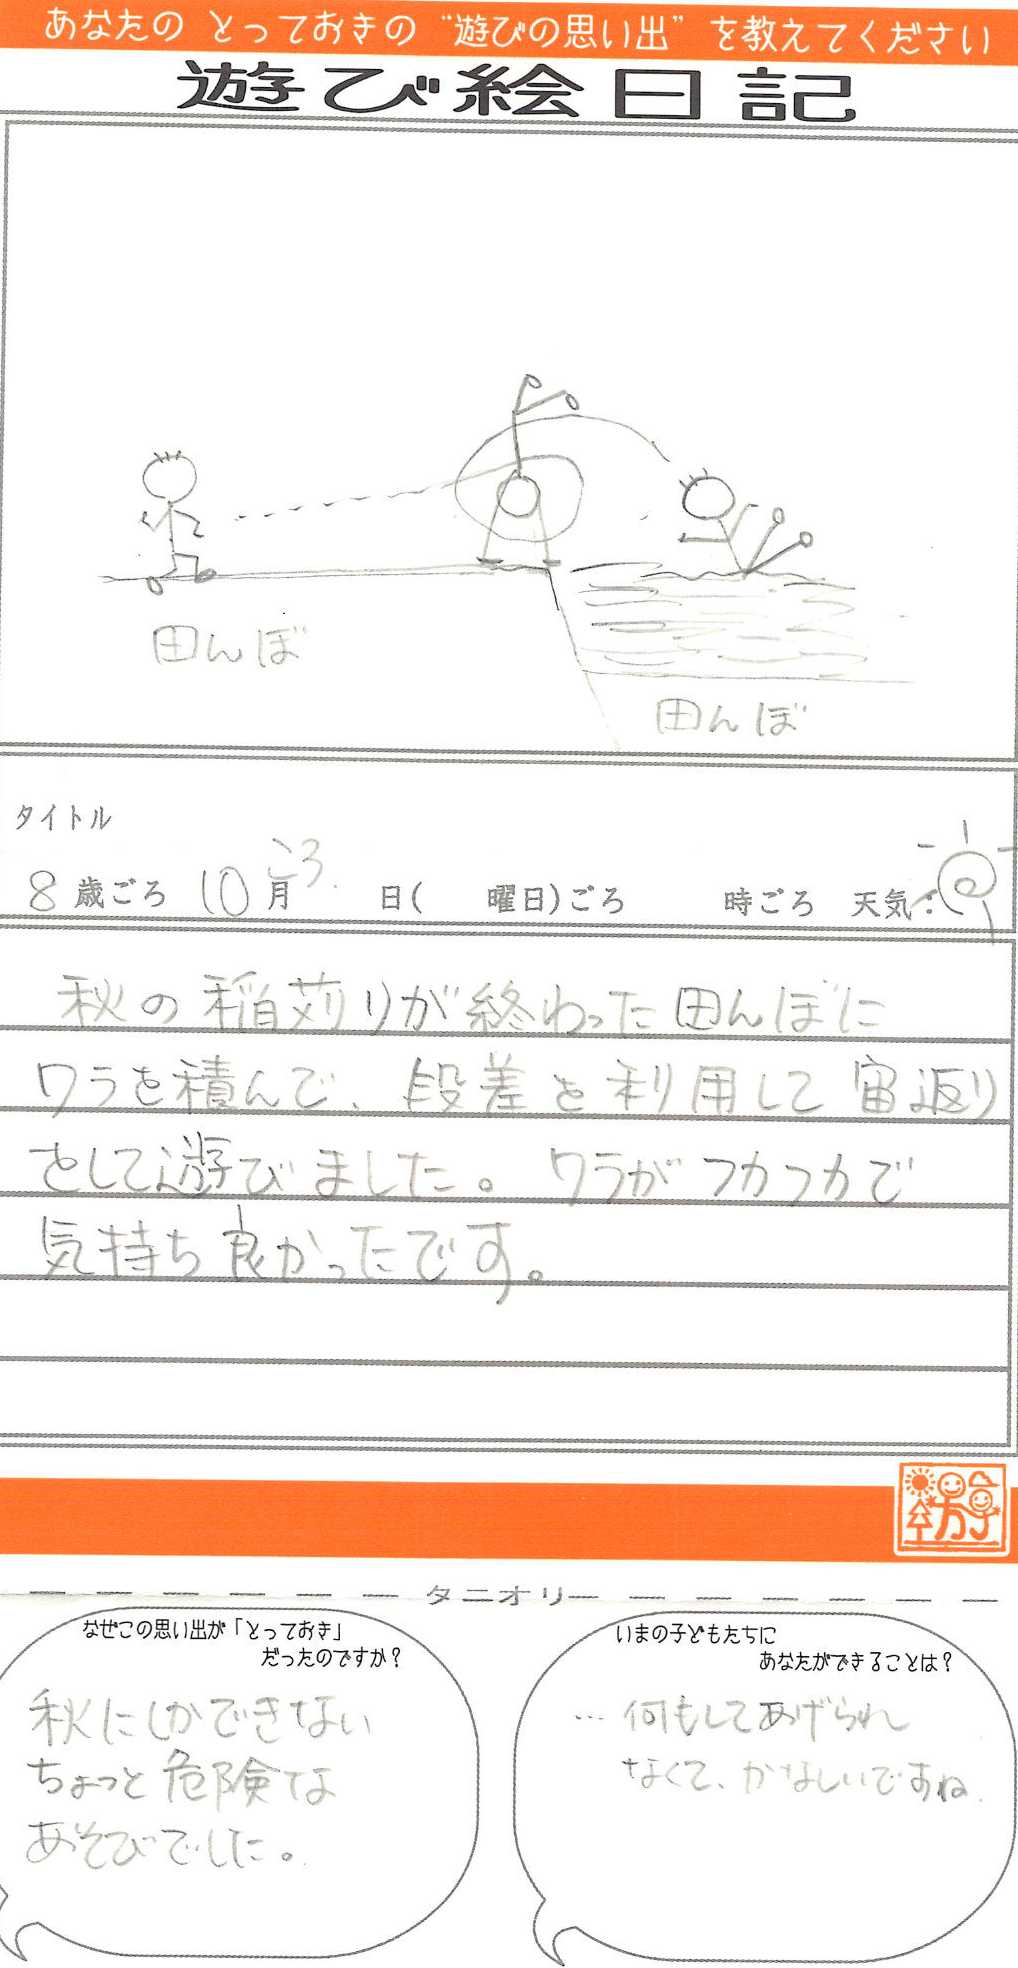 あなたの とっておきの “遊びの思い出” を教えてください
遊び絵日記
田んぼ
田んぼ
タイトル
8歳ごろ 10月ごろ 日( 曜日)ごろ 時ごろ 天気:
秋の稲苅りが終わった田んぼに
ワラを積んで、段差を利用して宙返り
をして遊びました。ワラがフカフカで
気持ち良かったです。
タニオリ
なぜこの思い出が「とっておき」
だったのですか?
秋にしかできない
ちょっと危険な
あそびでした。
いまの子どもたちに
あなたができることは?
…何もしてあげられ
なくて、かなしいですね.